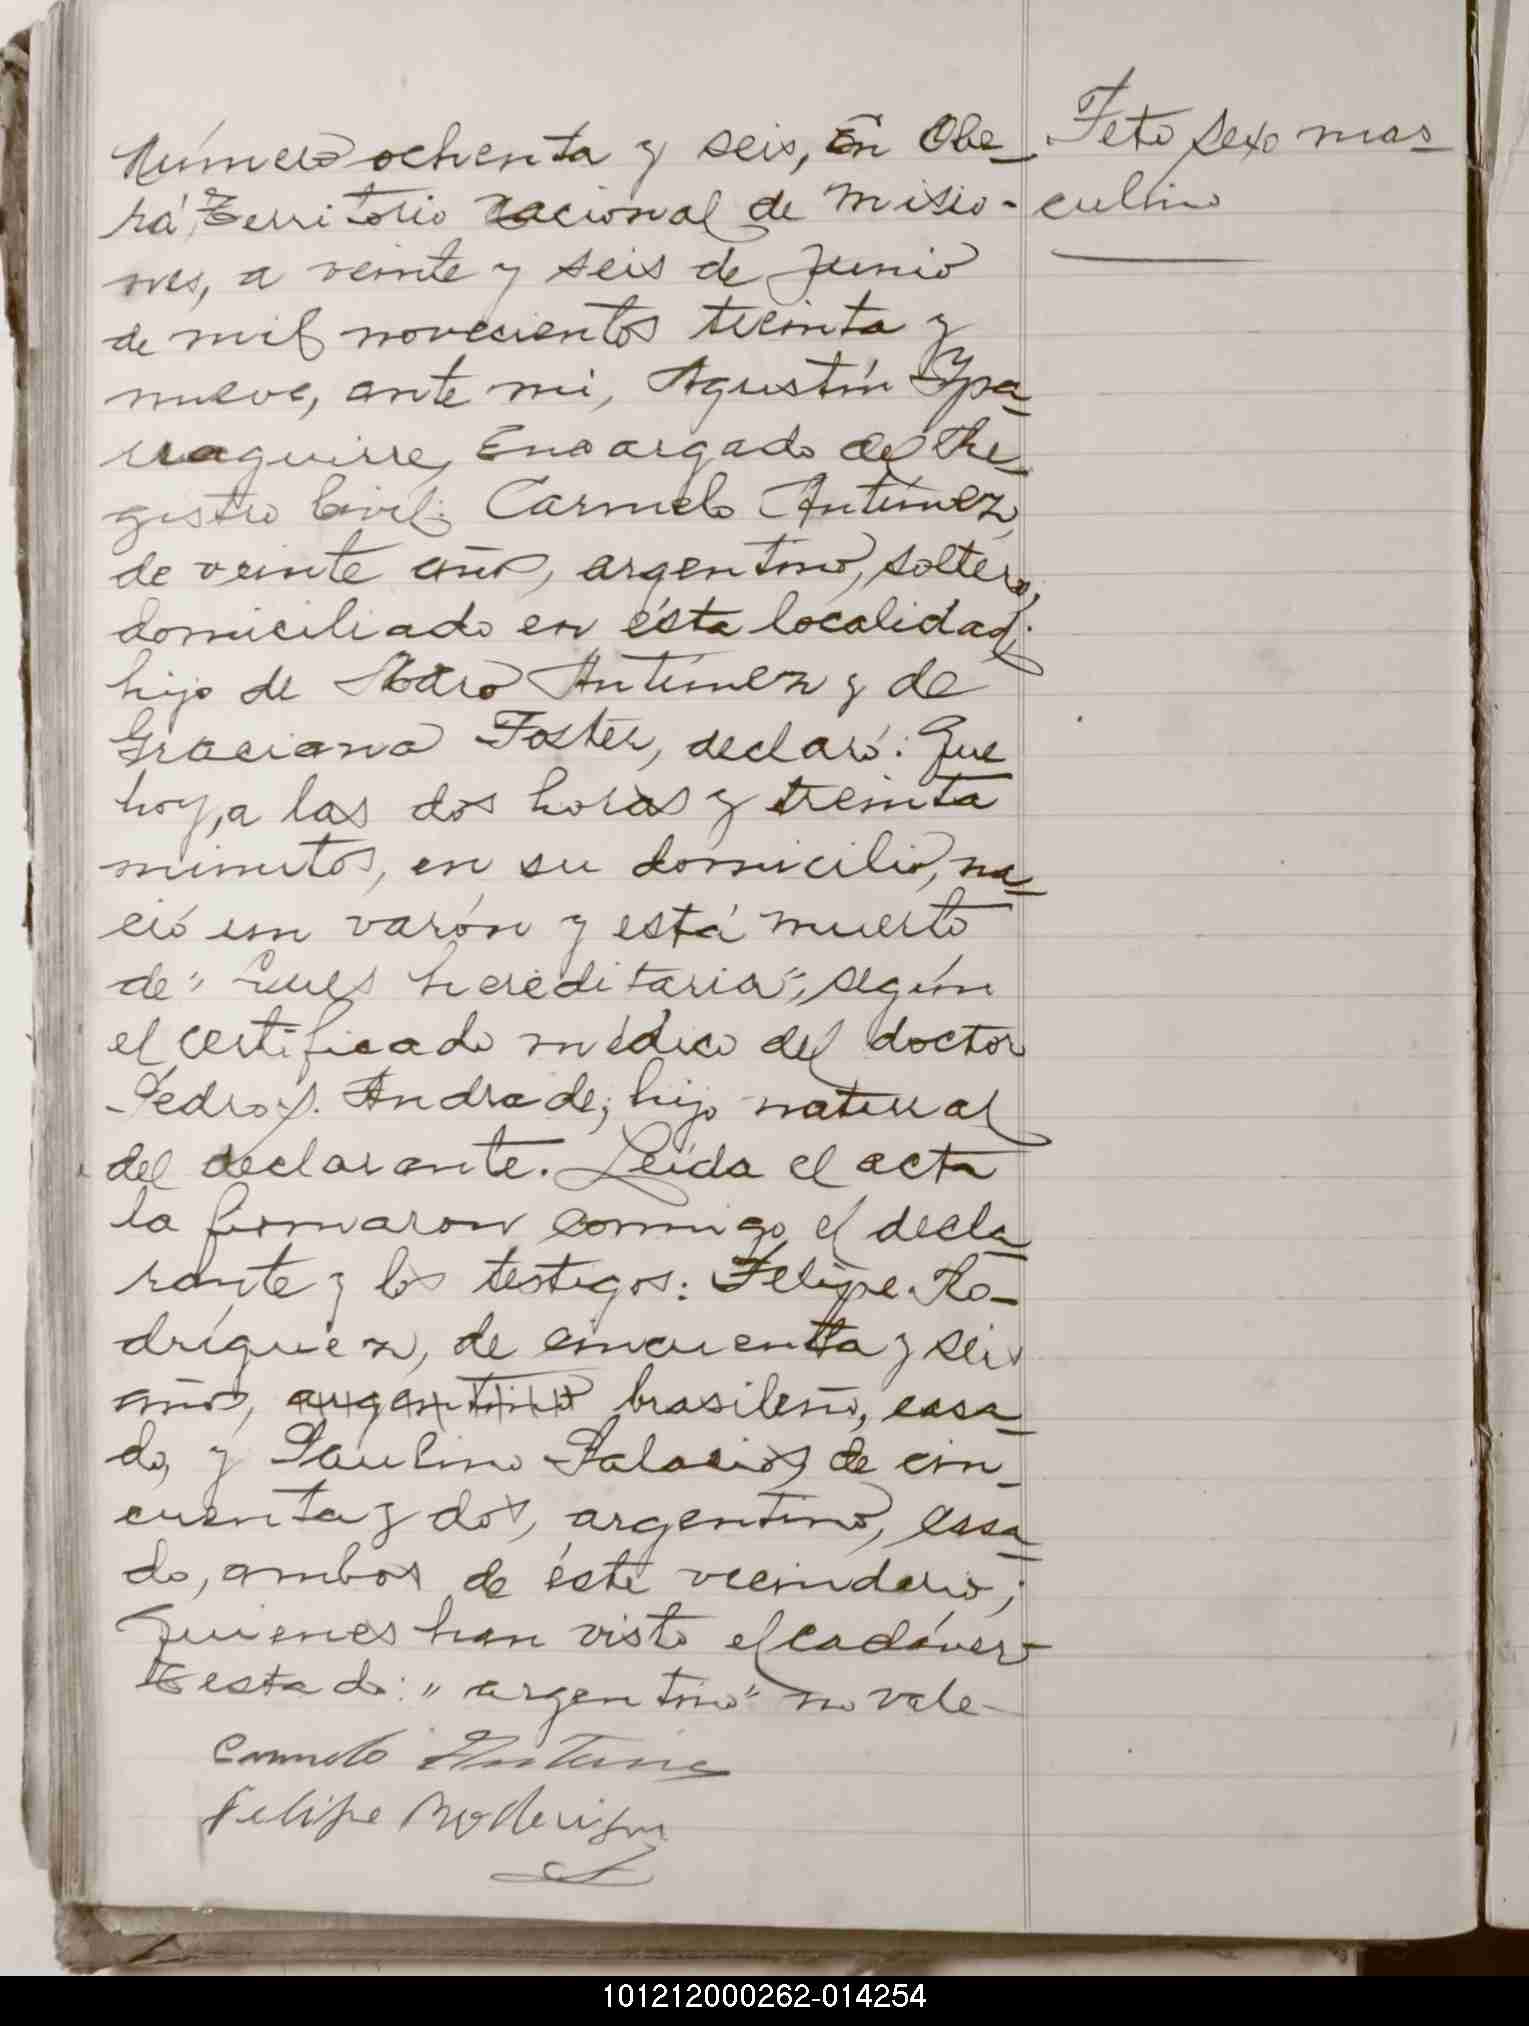 Número ochenta y seis, En Obe-
rá, Territorio Nacional de Misio-
nes, a veinte y seis de Junio
de mil novecientos treinta y
nueve, ante mi, Agustín Ypa-
rraguirre, Encargado del Re-
gistro Civil: Carmelo Antúnez,
de veinte años, argentino, soltero,
domiciliado en ésta localidad;
hijo de Antúnez y de
Graciana Foster, declaró: Que
hoy, a las dos horas y treinta
minutos, en su domicilio, na-
ció un varón y está muerto
de "Lues hereditaria", según
el certificado médico del doctor
Pedro Andrade; hijo natural
del declarante. Leída el acta
la firmaron conmigo el decla-
rante y los testigos: Felipe Ro-
dríguez, de cincuenta y seis
años, argentino brasileño, casa-
do, y Paulino Palacios de cin-
cuenta y dos, argentino, casa-
do, ambos de éste vecindario;
Quienes han visto el cadáver-
Testado: "argentino" no vale-
Carmelo Antune
Felipe Roderigu
Feto sexo mas-
culino
101212000262-014254